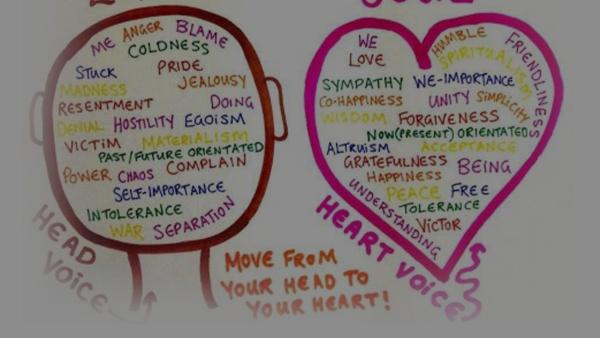 ME ANGER BLAME
COLDNESS
STUCK PRIDE
MADNESS JEALOUSY
RESENTMENT DOING
DENIAL HOSTILITY EGOISM
VICTIM MATERIALISM
PAST/FUTURE ORIENTATED
POWER CHAOS COMPLAIN
SELF-IMPORTANCE
INTOLERANCE
WAR SEPARATION
HEAD
VOICE
MOVE FROM
YOUR HEAD TO
YOUR HEART!
WE HUMBLE FRIENDLINESS
LOVE SPIRITUALISM
SYMPATHY WE-IMPORTANCE
CO-HAPPINESS UNITY SIMPLICITY
WISDOM FORGIVENESS
NOW(PRESENT) ORIENTATED
ALTRUISM ACCEPTANCE
GRATEFULNESS BEING
HAPPINESS
PEACE FREE
UNDERSTANDING TOLERANCE
VICTOR
HEART VOICE